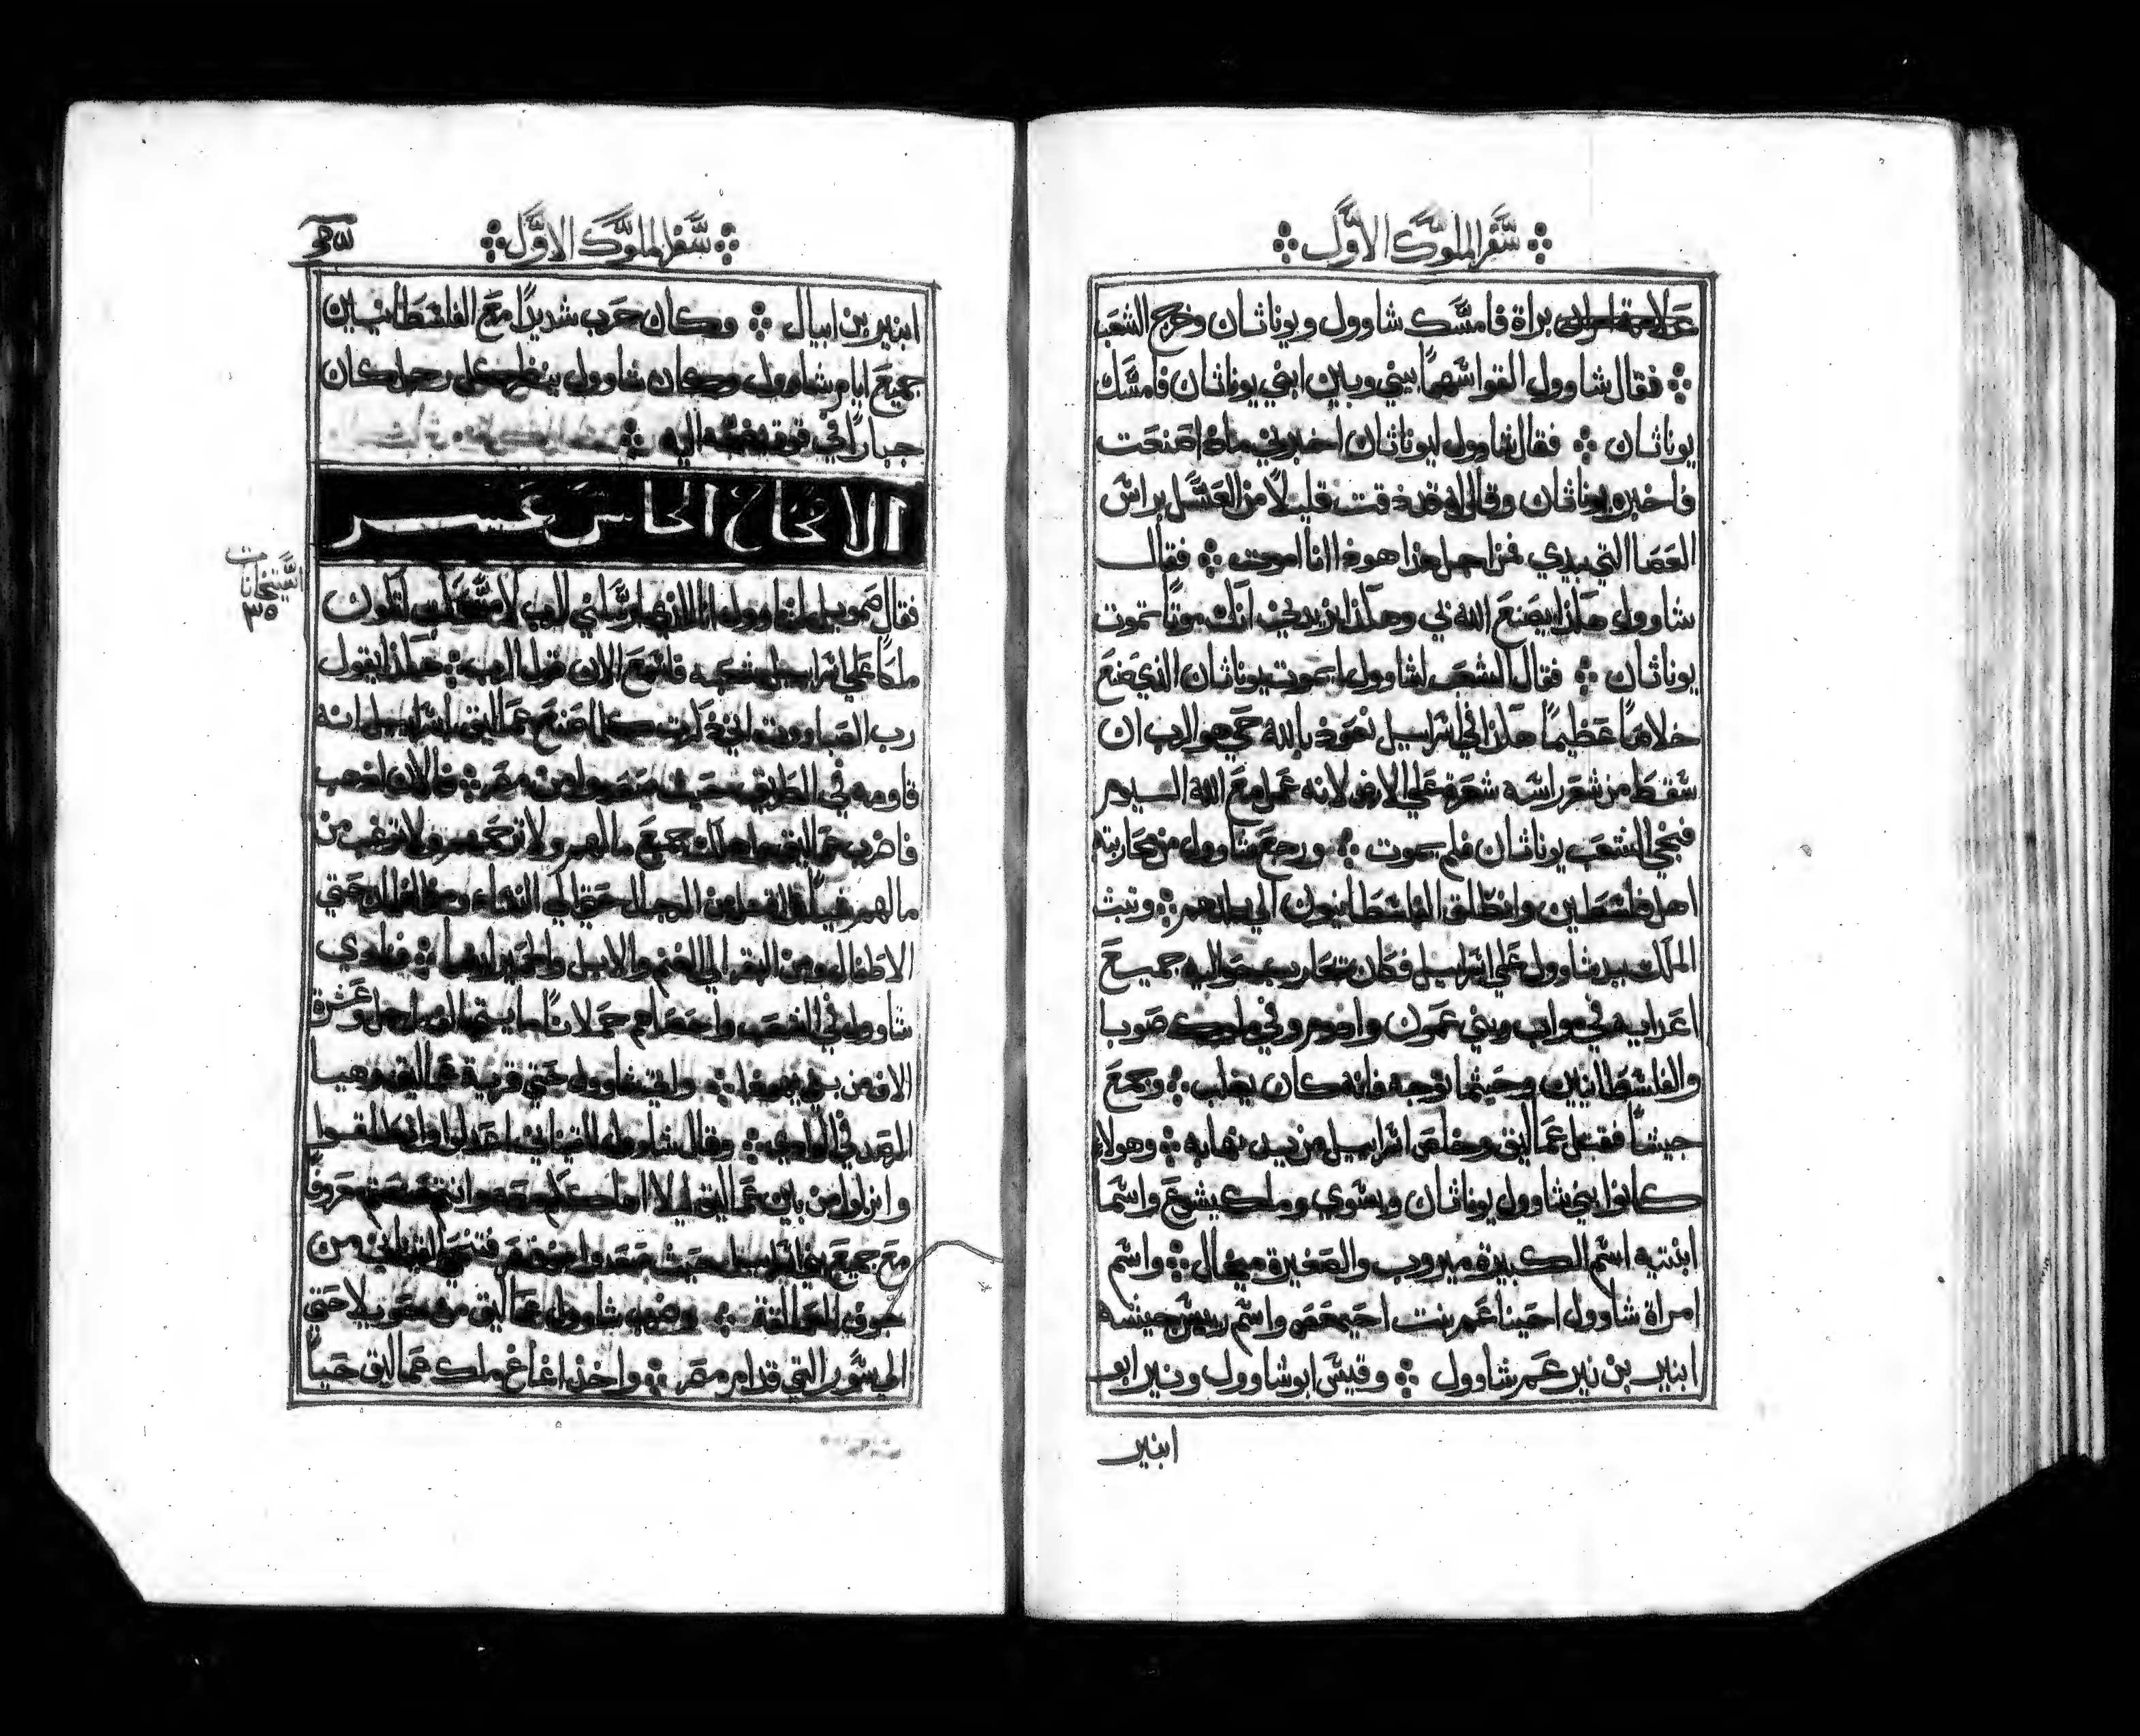 سفر الملوك الاول
براة فامسك شاوول ويوناثان وخرج الشعب
فقال شاوول القوا سهما بيني وبين ابني يوناثان فامسك
يوناثان فقال شاوول ليوناثان اخبرني ماذا صنعت
فاخبره يوناثان وقال له قد ذقت قليلا من العسل براس
العصا التي بيدي فمن اجل هذا هوذا انا اموت فقال
شاوول هكذا يصنع الله بي وهكذا يزيدني انك موتا تموت
يوناثان فقال الشعب لشاوول ايموت يوناثان الذي صنع
خلاصا عظيما هكذا في اسراييل نعوذ بالله حي هو الرب ان
سقط من شعر راسه شعرة علي الارض لانه عمل مع الله اليوم
فنجي الشعب يوناثان فلم يموت ورجع شاوول من محاربته
اهل فلسطين وانطلق الفلسطانيون الي بلدهم وتبت
الملك بيد شاوول علي اسراييل فكان يحارب حواليه جميع
اعدايه في مواب وبني عمون وادوم وفي ملوك صوبا
والفلسطانيين وحيثما توجه فانه كان يغلب وجمع
جيشا فقتل عماليق وخلص اسراييل من يد نهابه وهولاء
كانوا بني شاوول يوناثان ويسوي وملكيشوع واسما
ابنتيه اسم الكبيرة ميروب والصغيرة ميخال واسم
امراة شاوول احينا عم بنت احيمعص واسم رييس جيشه
ابنير بن نير عم شاوول وقيس ابو شاوول ونير ابو
ابنير
سفر الملوك الاول
ابنير بن ابيال وكان حرب شديدا مع الفلسطانيين
جميع ايام شاوول وكان شاوول ينظر كل رجل كان
جبارا في قوته يضمه اليه
الاصحاح الخامس عشر
فقال صمويل لشاوول انا الذي ارسلني الرب لامسحك لتكون
ملكا علي اسراييل شعبه فاسمع الان قول الرب هكذا يقول
رب الصباووت اني ذكرت كلما صنع عماليق باسراييل انه
قاومه في الطريق حيث صعدوا من مصر فالان اذهب
فاضرب عماليق واهلك جميع مالهم ولا ترحمهم ولا ترغب من
مالهم شيا اقتل من الرجال حتي الي النساء ومن الغلمان حتي
الاطفال ومن البقر الي الغنم والابل والحمير ايضا فنادي
شاوول في الشعب واحصاهم حملانا مايتا الف راجل وعشرة
الاف من بني يهودا واتي شاوول حتي قرية عماليق وهيا
الرصد في الوادي وقال شاوول للقيناني اعدلوا وانطلقوا
وانزلوا من بين عماليق ليلا اهلككم معه وانتم صنعتم معروفا
مع جميع بني اسراييل حيث صعدوا من مصر فتنحي القيناني من
جوف العمالقة وضرب شاوول عماليق من حويلا حتي
الي سور التي قدام مصر واخذ اغاغ ملك عماليق حيا